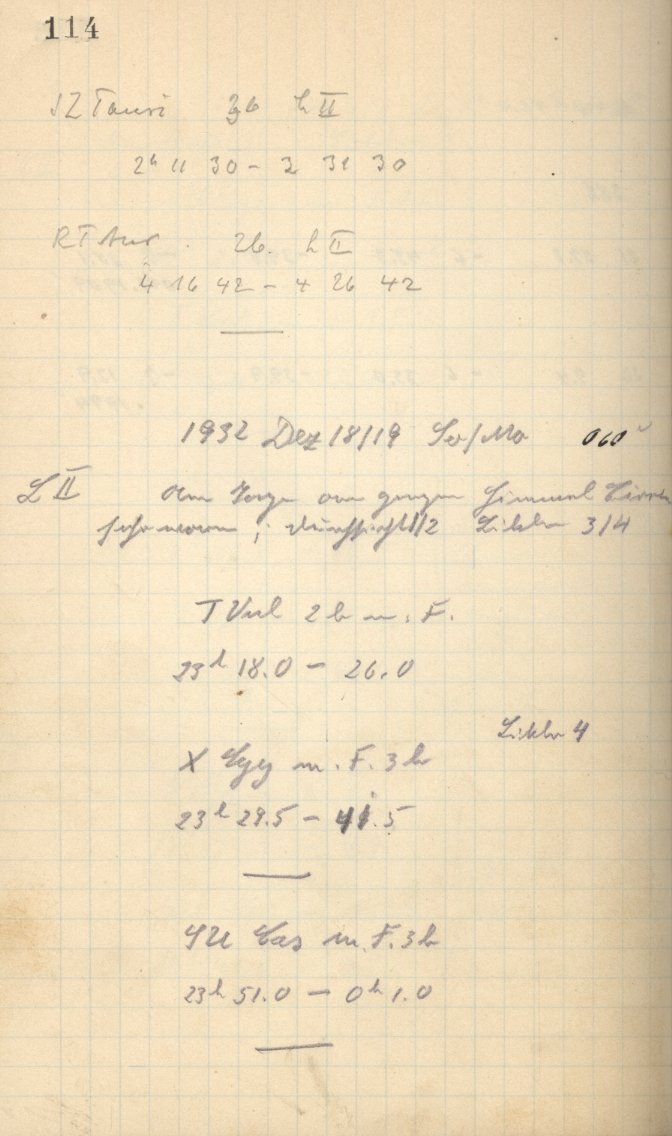 114
SZ Tauri 3b h II
2h 11 30 – 2 31 30
RT Aur. 2b. h II
4 16 42 – 4 26 42
1932 Dez 18/19 So/Mo 060
L II Am ganzen Himmel
sehr ; Durchsicht 1/2 3/4
T Vul 2b m. F.
23h 18.0 – 26.0
4
X Cyg m. F. 3b
23h 29.5 – 41.5
SU Cas m. F. 3b
23h 51.0 – 0h 1.0